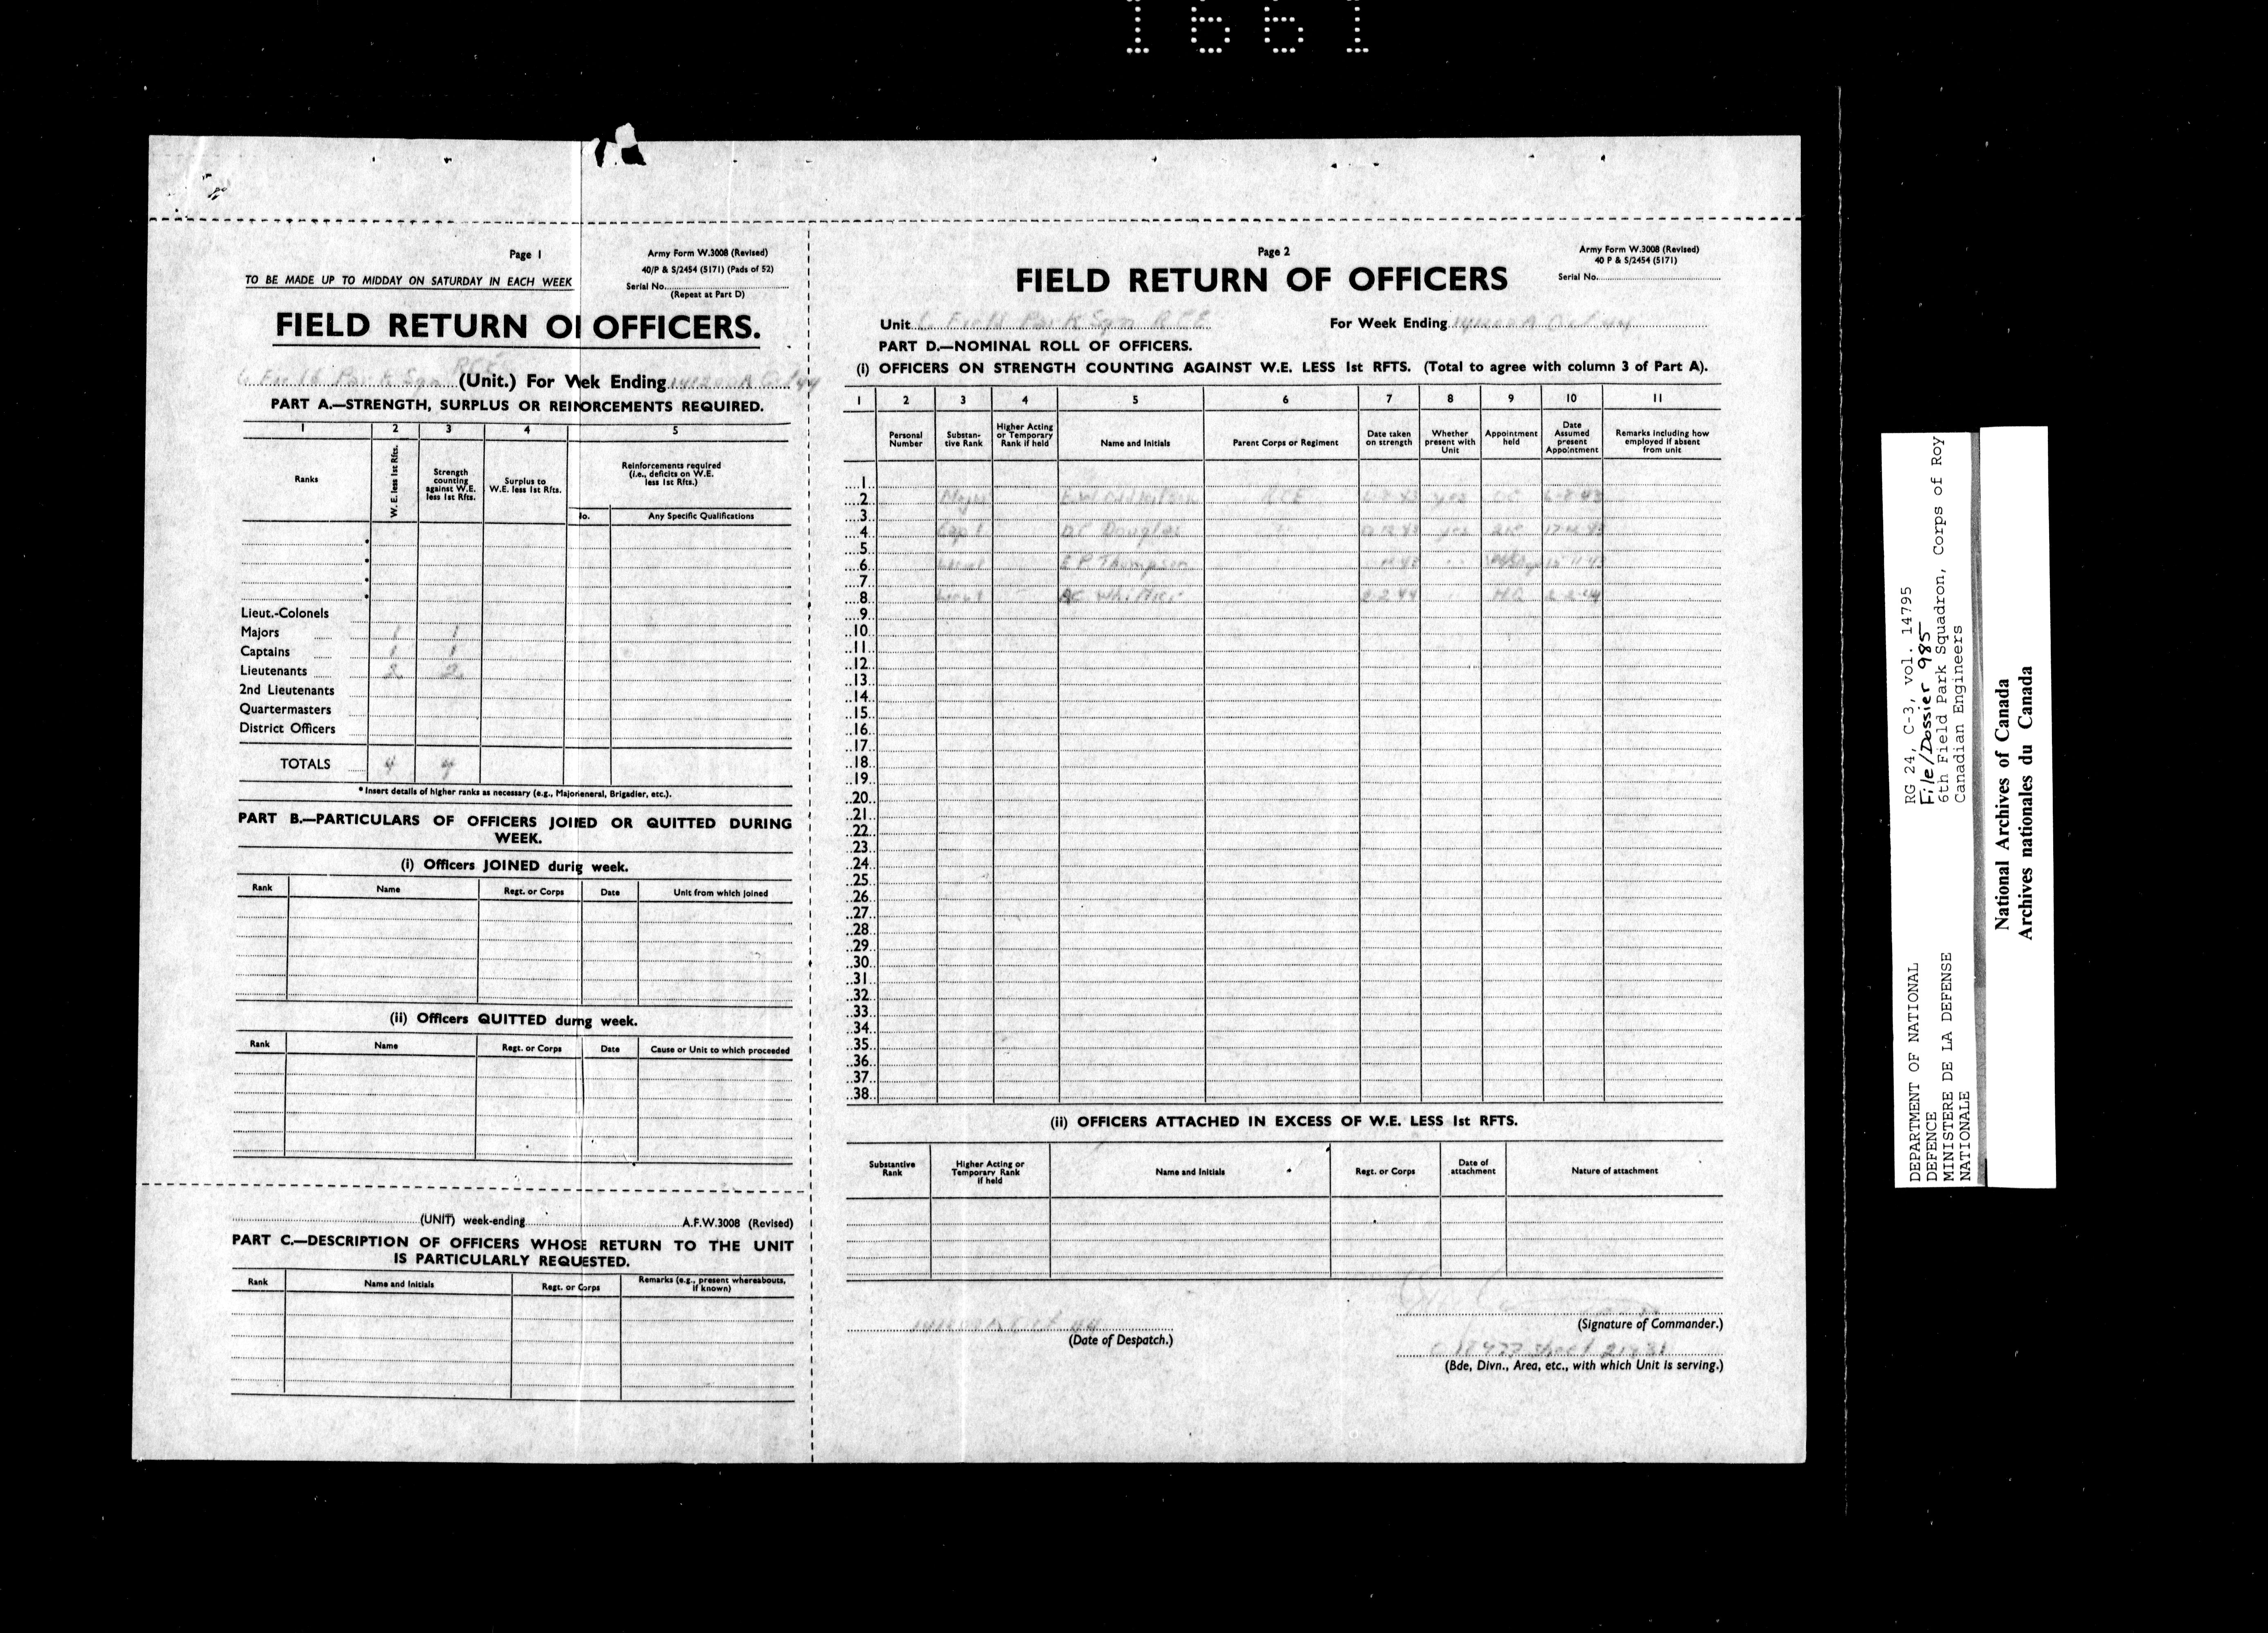 1661
Page 1
Army Form W.3008 (Revised)
40/P & S/2454 (5171) (Pads of 52)
TO BE MADE UP TO MIDDAY ON SATURDAY IN EACH WEEK
Serial No.
(Repeat at Part D)
FIELD RETURN OF OFFICERS.
Park Sqn RCE (Unit.) For Wek Ending
PART A.—STRENGTH, SURPLUS OR REINORCEMENTS REQUIRED.
1 2 3 4 5
Ranks
W. E. less 1st Rfts.
Strength counting against W.E. less 1st Rfts.
Surplus to W.E. less 1st Rfts.
Reinforcements required (i.e., deficits on W.E. less 1st Rfts.)
lo. Any Specific Qualifications
Lieut.-Colonels
Majors 1 1
Captains 1 1
Lieutenants 2 2
2nd Lieutenants
Quartermasters
District Officers
TOTALS 4 4
* Insert details of higher ranks as necessary (e.g., Majorieneral, Brigadier, etc.).
PART B.—PARTICULARS OF OFFICERS JOIIED OR QUITTED DURING
WEEK.
(i) Officers JOINED durig week.
Rank Name Regt. or Corps Date Unit from which joined
(ii) Officers QUITTED durng week.
Rank Name Regt. or Corps Date Cause or Unit to which proceeded
(UNIT) week-ending A.F.W.3008 (Revised)
PART C.—DESCRIPTION OF OFFICERS WHOSE RETURN TO THE UNIT
IS PARTICULARLY REQUESTED.
Rank Name and Initials Regt. or Corps Remarks (e.g., present whereabouts, if known)
Page 2
Army Form W.3008 (Revised)
40 P & S/2454 (5171)
FIELD RETURN OF OFFICERS
Serial No.
Unit 6 Field Park Sqn RCE For Week Ending
PART D.—NOMINAL ROLL OF OFFICERS.
(i) OFFICERS ON STRENGTH COUNTING AGAINST W.E. LESS 1st RFTS. (Total to agree with column 3 of Part A).
1 2 3 4 5 6 7 8 9 10 11
Personal Number
Substan-tive Rank
Higher Acting or Temporary Rank if held
Name and Initials
Parent Corps or Regiment
Date taken on strength
Whether present with Unit
Appointment held
Date Assumed present Appointment
Remarks including how employed if absent from unit
1
2 Major RCE yes OC
3
4 Capt Douglas yes
5
6 Lieut E P Thompson
7
8 Lieut
9
10
11
12
13
14
15
16
17
18
19
20
21
22
23
24
25
26
27
28
29
30
31
32
33
34
35
36
37
38
(ii) OFFICERS ATTACHED IN EXCESS OF W.E. LESS 1st RFTS.
Substantive Rank
Higher Acting or Temporary Rank if held
Name and Initials
Regt. or Corps
Date of attachment
Nature of attachment
(Signature of Commander.)
(Date of Despatch.)
(Bde, Divn., Area, etc., with which Unit is serving.)
DEPARTMENT OF NATIONAL
DEFENCE
MINISTERE DE LA DEFENSE
NATIONALE
RG 24, C-3, vol. 14795
File/Dossier 985
6th Field Park Squadron, Corps of Roy
Canadian Engineers
National Archives of Canada
Archives nationales du Canada